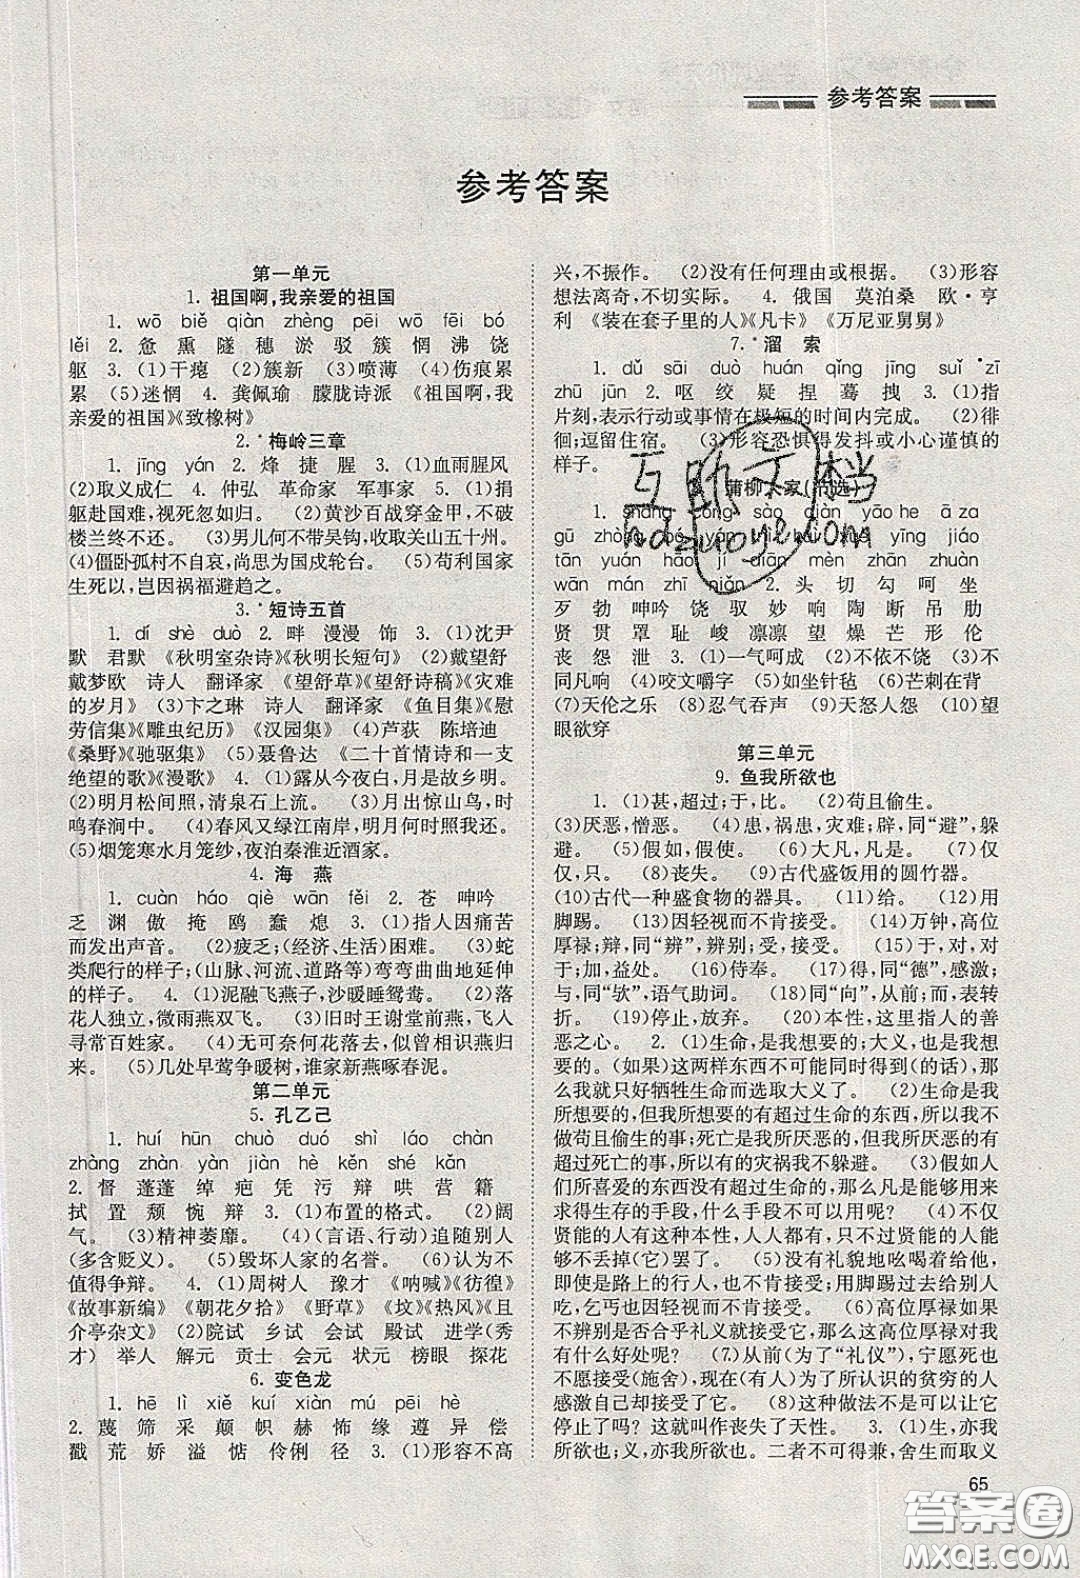 参考答案
参考答案
第一单元
1. 祖国啊,我亲爱的祖国
1. wō biě qiàn zhèng pēi wō fēi bó
lěi 2. 惫 熏 隧 穗 淤 驳 簇 惘 沸 饶
躯 3. (1)干瘪 (2)簇新 (3)喷薄 (4)伤痕累
累 (5)迷惘 4. 龚佩瑜 朦胧诗派 《祖国啊,我
亲爱的祖国》《致橡树》
2. *梅岭三章
1. jīng yán 2. 烽 捷 腥 3. (1)血雨腥风
(2)取义成仁 4. 仲弘 革命家 军事家 5. (1)捐
躯赴国难,视死忽如归。 (2)黄沙百战穿金甲,不破
楼兰终不还。 (3)男儿何不带吴钩,收取关山五十州。
(4)僵卧孤村不自哀,尚思为国戍轮台。 (5)苟利国家
生死以,岂因祸福避趋之。
3. *短诗五首
1. dí shè duò 2. 畔 漫漫 饰 3. (1)沈尹
默 君默 《秋明室杂诗》《秋明长短句》 (2)戴望舒
戴梦欧 诗人 翻译家 《望舒草》《望舒诗稿》《灾难
的岁月》 (3)卞之琳 诗人 翻译家 《鱼目集》《慰
劳信集》《雕虫纪历》《汉园集》 (4)芦荻 陈培迪
《桑野》《驰驱集》 (5)聂鲁达 《二十首情诗和一支
绝望的歌》《漫歌》 4. (1)露从今夜白,月是故乡明。
(2)明月松间照,清泉石上流。 (3)月出惊山鸟,时
鸣春涧中。 (4)春风又绿江南岸,明月何时照我还。
(5)烟笼寒水月笼纱,夜泊秦淮近酒家。
4. 海 燕
1. cuàn háo qiè wān fěi 2. 苍 呻吟
乏 渊 傲 掩 鸥 蠢 熄 3. (1)指人因痛苦
而发出声音。 (2)疲乏;(经济、生活)困难。 (3)蛇
类爬行的样子;(山脉、河流、道路等)弯弯曲曲地延伸
的样子。 4. (1)泥融飞燕子,沙暖睡鸳鸯。 (2)落
花人独立,微雨燕双飞。 (3)旧时王谢堂前燕,飞入
寻常百姓家。 (4)无可奈何花落去,似曾相识燕归来。
(5)几处早莺争暖树,谁家新燕啄春泥。
第二单元
5. 孔乙己
1. huí hūn chuò duó shì láo chàn
zhàng zhàn yàn jiàn hè kěn shé kǎn
2. 督 蓬蓬 绰 疤 凭 污 辩 哄 营 籍
拭 置 颓 惋 辩 3. (1)布置的格式。 (2)阔
气。 (3)精神萎靡。 (4)(言语、行动)追随别人
(多含贬义)。 (5)毁坏人家的名誉。 (6)认为不
值得争辩。 4. (1)周树人 豫才 《呐喊》《彷徨》
《故事新编》 《朝花夕拾》 《野草》 《坟》《热风》《且
介亭杂文》 (2)院试 乡试 会试 殿试 进学(秀
才) 举人 解元 贡士 会元 状元 榜眼 探花
6. 变色龙
1. hē lì xiě kuí xiàn mú pēi hè
2. 蔑 筛 采 颠 帜 赫 怖 缘 遵 异 偿
戳 荒 娇 溢 惦 伶俐 径 3. (1)形容不高
兴,不振作。 (2)没有任何理由或根据。 (3)形容
想法离奇,不切实际。 4. 俄国 莫泊桑 欧·亨
利 《装在套子里的人》《凡卡》 《万尼亚舅舅》
7. *溜 索
1. dǔ sāi duò huán qǐng jīng suǐ zī
zhū jūn 2. 呕 绞 疑 捏 蓦 拽 3. (1)指
片刻,表示行动或事情在极短的时间内完成。 (2)徘
徊;逗留住宿。 (3)形容恐惧得发抖或小心谨慎的
样子。
蒲柳人家(节选)
gū
tān yuán háo jí dián chàn zhuàn
wān mán zhī niǎn 2. 头 切 勾 呵 坐
歹 勃 呻吟 饶 驭 妙 响 陶 断 吊 肋
贤 贯 罩 耻 峻 凛凛 望 燥 芒 形 伦
丧 怨 泄 3. (1)一气呵成 (2)不依不饶 (3)不
同凡响 (4)咬文嚼字 (5)如坐针毡 (6)芒刺在背
(7)天伦之乐 (8)忍气吞声 (9)天怒人怨 (10)望
眼欲穿
第三单元
9. 鱼我所欲也
1. (1)甚,超过;于,比。 (2)苟且偷生。
(3)厌恶,憎恶。 (4)患,祸患,灾难;辟,同“避”,躲
避。 (5)假如,假使。 (6)大凡,凡是。 (7)仅
仅,只是。 (8)丧失。 (9)古代盛饭用的圆竹器。
(10)古代一种盛食物的器具。 (11)给。 (12)用
脚踢。 (13)因轻视而不肯接受。 (14)万钟,高位
厚禄;辩,同“辨”,辨别;受,接受。 (15)于,对,对
于;加,益处。 (16)侍奉。 (17)得,同“德”,感激;
与,同“欤”,语气助词。 (18)同“向”,从前;而,表转
折。 (19)停止,放弃。 (20)本性,这里指人的善
恶之心。 2. (1)生命,是我想要的;大义,也是我想
要的;如果这两样东西不能同时得到(的话),
那么我就只好牺牲生命而选大义了。 (2)生命是我
所想要的,但我想要的有超过生命的东西,所以我不
做苟且偷生的事;死亡是我所厌恶的,但我所厌恶的有
超过死亡的事,所以有的灾祸我不躲避。 (3)假如人
们所喜爱的东西没有超过生命的,那么凡是能够用来
求得生存的手段,什么手段不可以用呢? (4)不仅
贤能的人有这种本性,人人都有,不过贤能的人能够
不丢掉(它)罢了。 (5)没有礼貌地吆喝着给他,
即使是路上的行人,也不肯接受;用脚踢过去给别人
吃,乞丐也因轻视而不肯接受。 (6)高位厚禄如果
不辨别是否合乎礼义就接受它,这高位厚禄对我
有什么好处呢? (7)从前(为了“礼仪”),宁愿死也
不愿接受(施舍),现在(却)为了所认识的贫困的人
感激我却接受了它。 (8)这种做法不是可以让它
停止了吗?这就叫作丧失了天性。 3. (1)生,亦我
所欲也;义,亦我所欲也。二者不可得兼,舍生而取义
65
互助文档
hdzuoye.com
答案圈
MXQE.COM